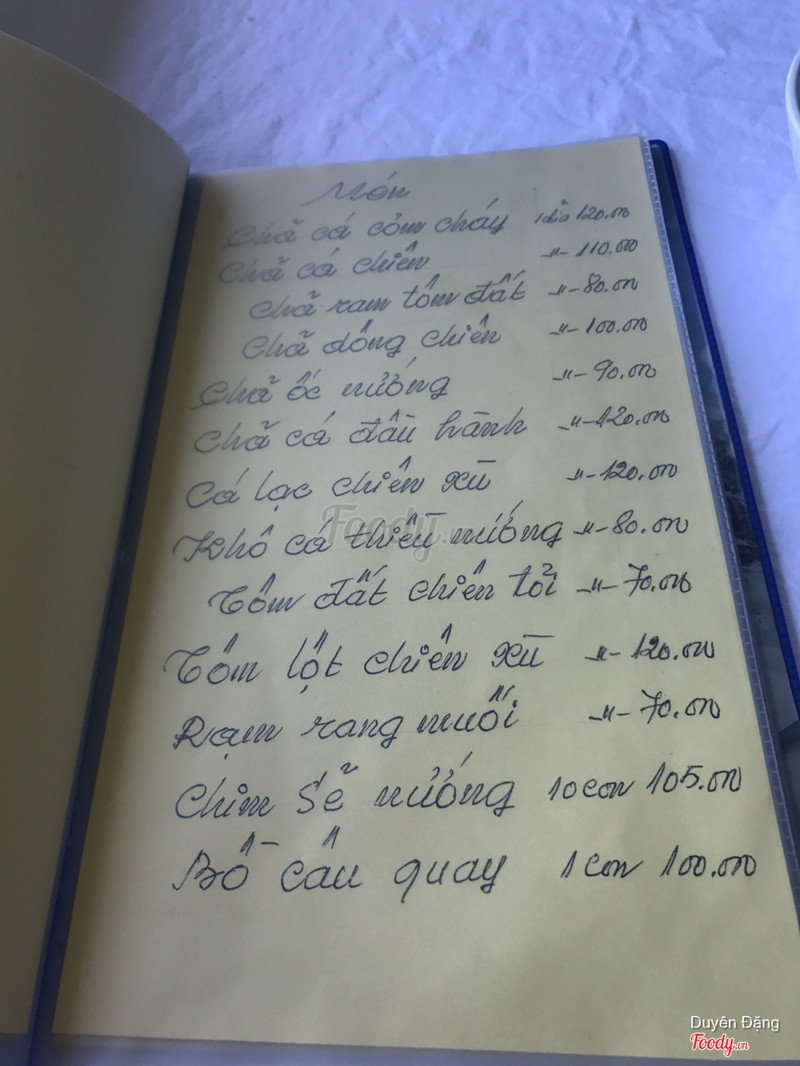 Món
Chã cá cơm cháy 1 dĩa 120.000
Chã cá chiên -"- 110.000
Chã ram tôm đất -"- 80.000
Chã dông chiên -"- 100.000
Chã ốc nướng -"- 90.000
Chã cá đầu hành -"- 120.000
Cá lạc chiên xù -"- 120.000
Khô cá thiều nướng -"- 80.000
Tôm đất chiên tỏi -"- 70.000
Tôm lột chiên xù -"- 120.000
Rạm rang muối -"- 70.000
Chim sẽ nướng 10 con 105.000
Bồ câu quay 1 con 100.000
Foody.vn
Duyên Đặng
Foody.vn